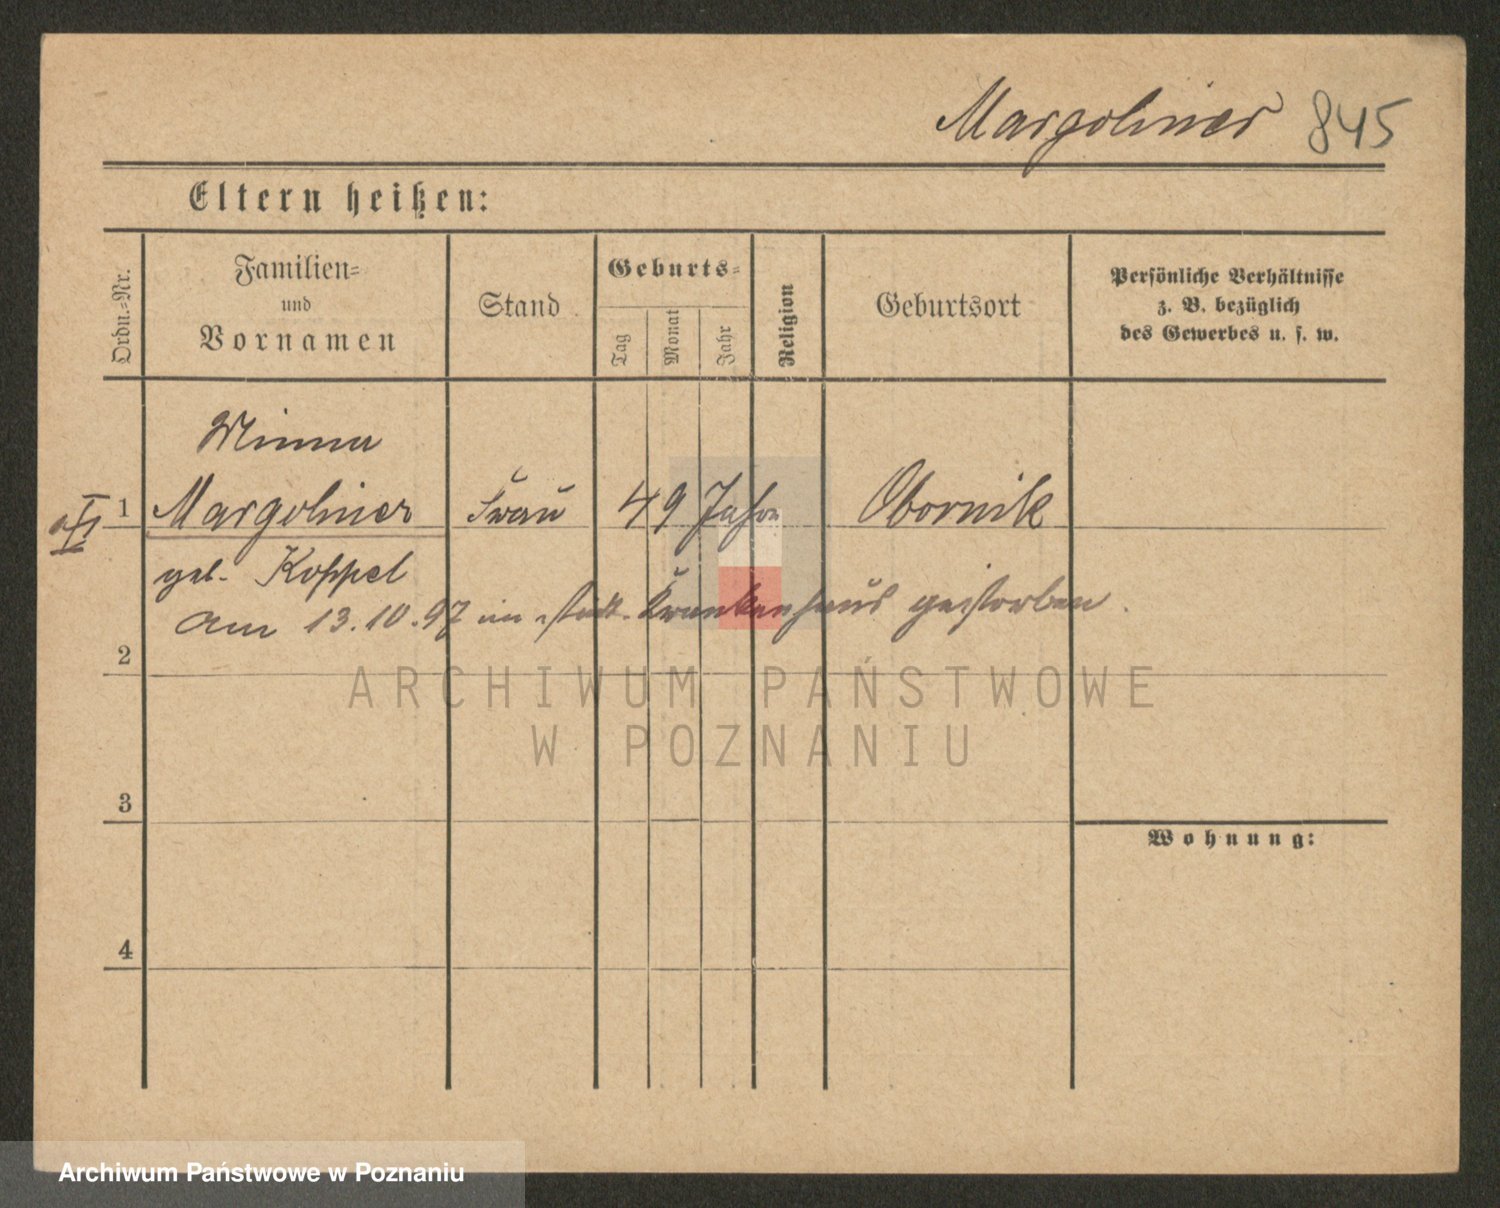 Margoliner 845
Eltern heißen:
Ordn.-Nr.
Familien-
und
Vornamen
Stand
Geburts-
Tag
Monat
Jahr
Religion
Geburtsort
Persönliche Verhältnisse
z. B. bezüglich
des Gewerbes u. s. w.
Minna
1 Margoliner Frau 49 Jahre Obornik
geb. Koppel
am 13.10.97 im städt. Krankenhaus gestorben.
2
ARCHIWUM PAŃSTWOWE
W POZNANIU
3
Wohnung:
4
Archiwum Państwowe w Poznaniu